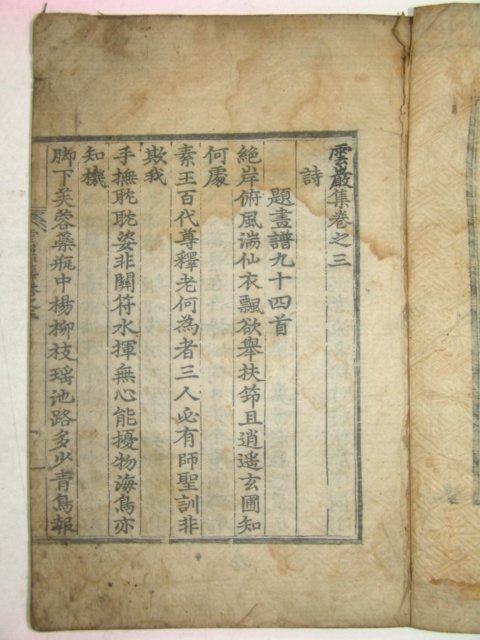 雲巖集卷之三
詩
題畫譜九十四首
絶岸俯風湍仙衣飄欲舉扶筇且逍遥玄圃知
何處
素王百代尊釋老何為者三人必有師聖訓非
欺我
手撫耽耽姿非關符水揮無心能擾物海鳥亦
知機
脚下芙蓉藥瓶中楊柳枝瑶池路多少青鳥報